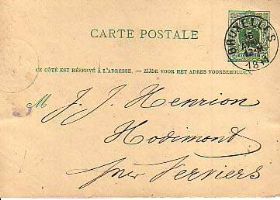 CARTE POSTALE
BRUXELLES
CE CÔTÉ EST RÉSERVÉ À L'ADRESSE. — ZIJDE VOOR HET ADRES VOORBEHOUDEN.
M J. J. Henrion
Hodimont
près Verviers